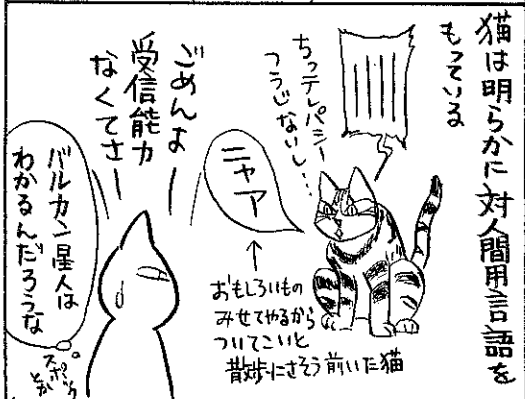 猫は明らかに対人間用言語を
もっている
ちっテレパシー
つうじないし…
ニャア
おもしろいもの
みせてやるから
ついてこいと
散歩にさそう前いた猫
ごめんよ
受信能力
なくてさー
バルカン星人は
わかるんだろうな
スポック
とか